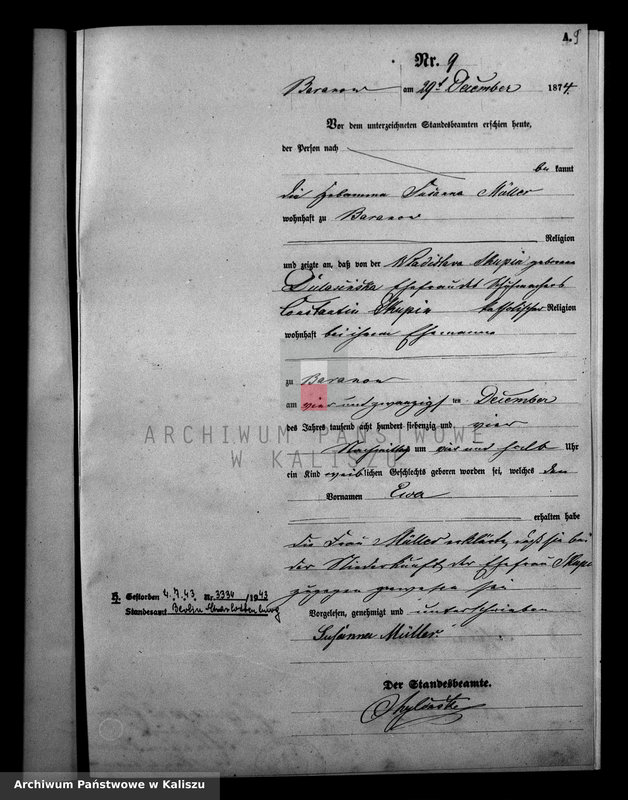 A. 9
Nr. 9
Baranow am 29t December 1874.
Vor dem unterzeichneten Standesbeamten erschien heute,
der Person nach
be kannt
die Hebamme Susanna Müller
wohnhaft zu Baranow
Religion
und zeigte an, daß von der Wladislava Skupin geborene
Ehefrau des Schuhmachers
Constantin Skupin katholischer Religion
wohnhaft bei ihrem Ehemanne
zu Baranow
am vier und zwanzigsten December
des Jahres tausend acht hundert siebenzig und vier
Nachmittag um vier und halb Uhr
ein Kind weiblichen Geschlechts geboren worden sei, welches den
Vornamen Ewa
erhalten habe
die Frau Müller erklärte, daß sie bei
der Niederkunft der Ehefrau Skupin
zugegen gewesen sei
Vorgelesen, genehmigt und unterschrieben
Susanna Müller
Der Standesbeamte.
Gestorben 4.7.43 Nr. 3334/1943
Standesamt Berlin Charlottenburg
ARCHIWUM PAŃSTWOWE
W KALISZU
Archiwum Państwowe w Kaliszu